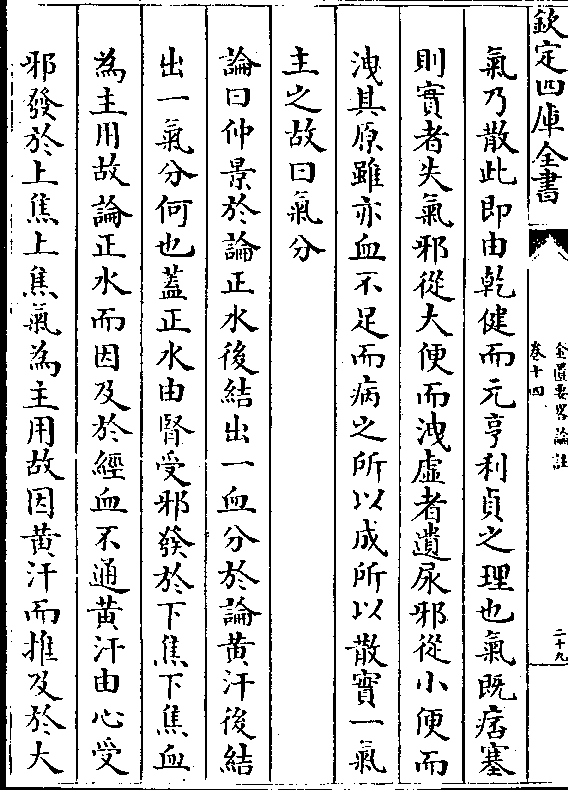 欽定四庫全書
金匱要畧論註
卷十四
二十九
氣乃散此即由乾健而元亨利貞之理也氣既痞塞
則實者失氣邪從大便而洩虛者遺尿邪從小便而
洩其原雖亦血不足而病之所以成所以散實一氣
主之故曰氣分
論曰仲景於論正水後結出一血分於論黄汗後結
出一氣分何也蓋正水由腎受邪發於下焦下焦血
為主用故論正水而因及於經血不通黄汗由心受
邪發於上焦上焦氣為主用故因黄汗而推及於大